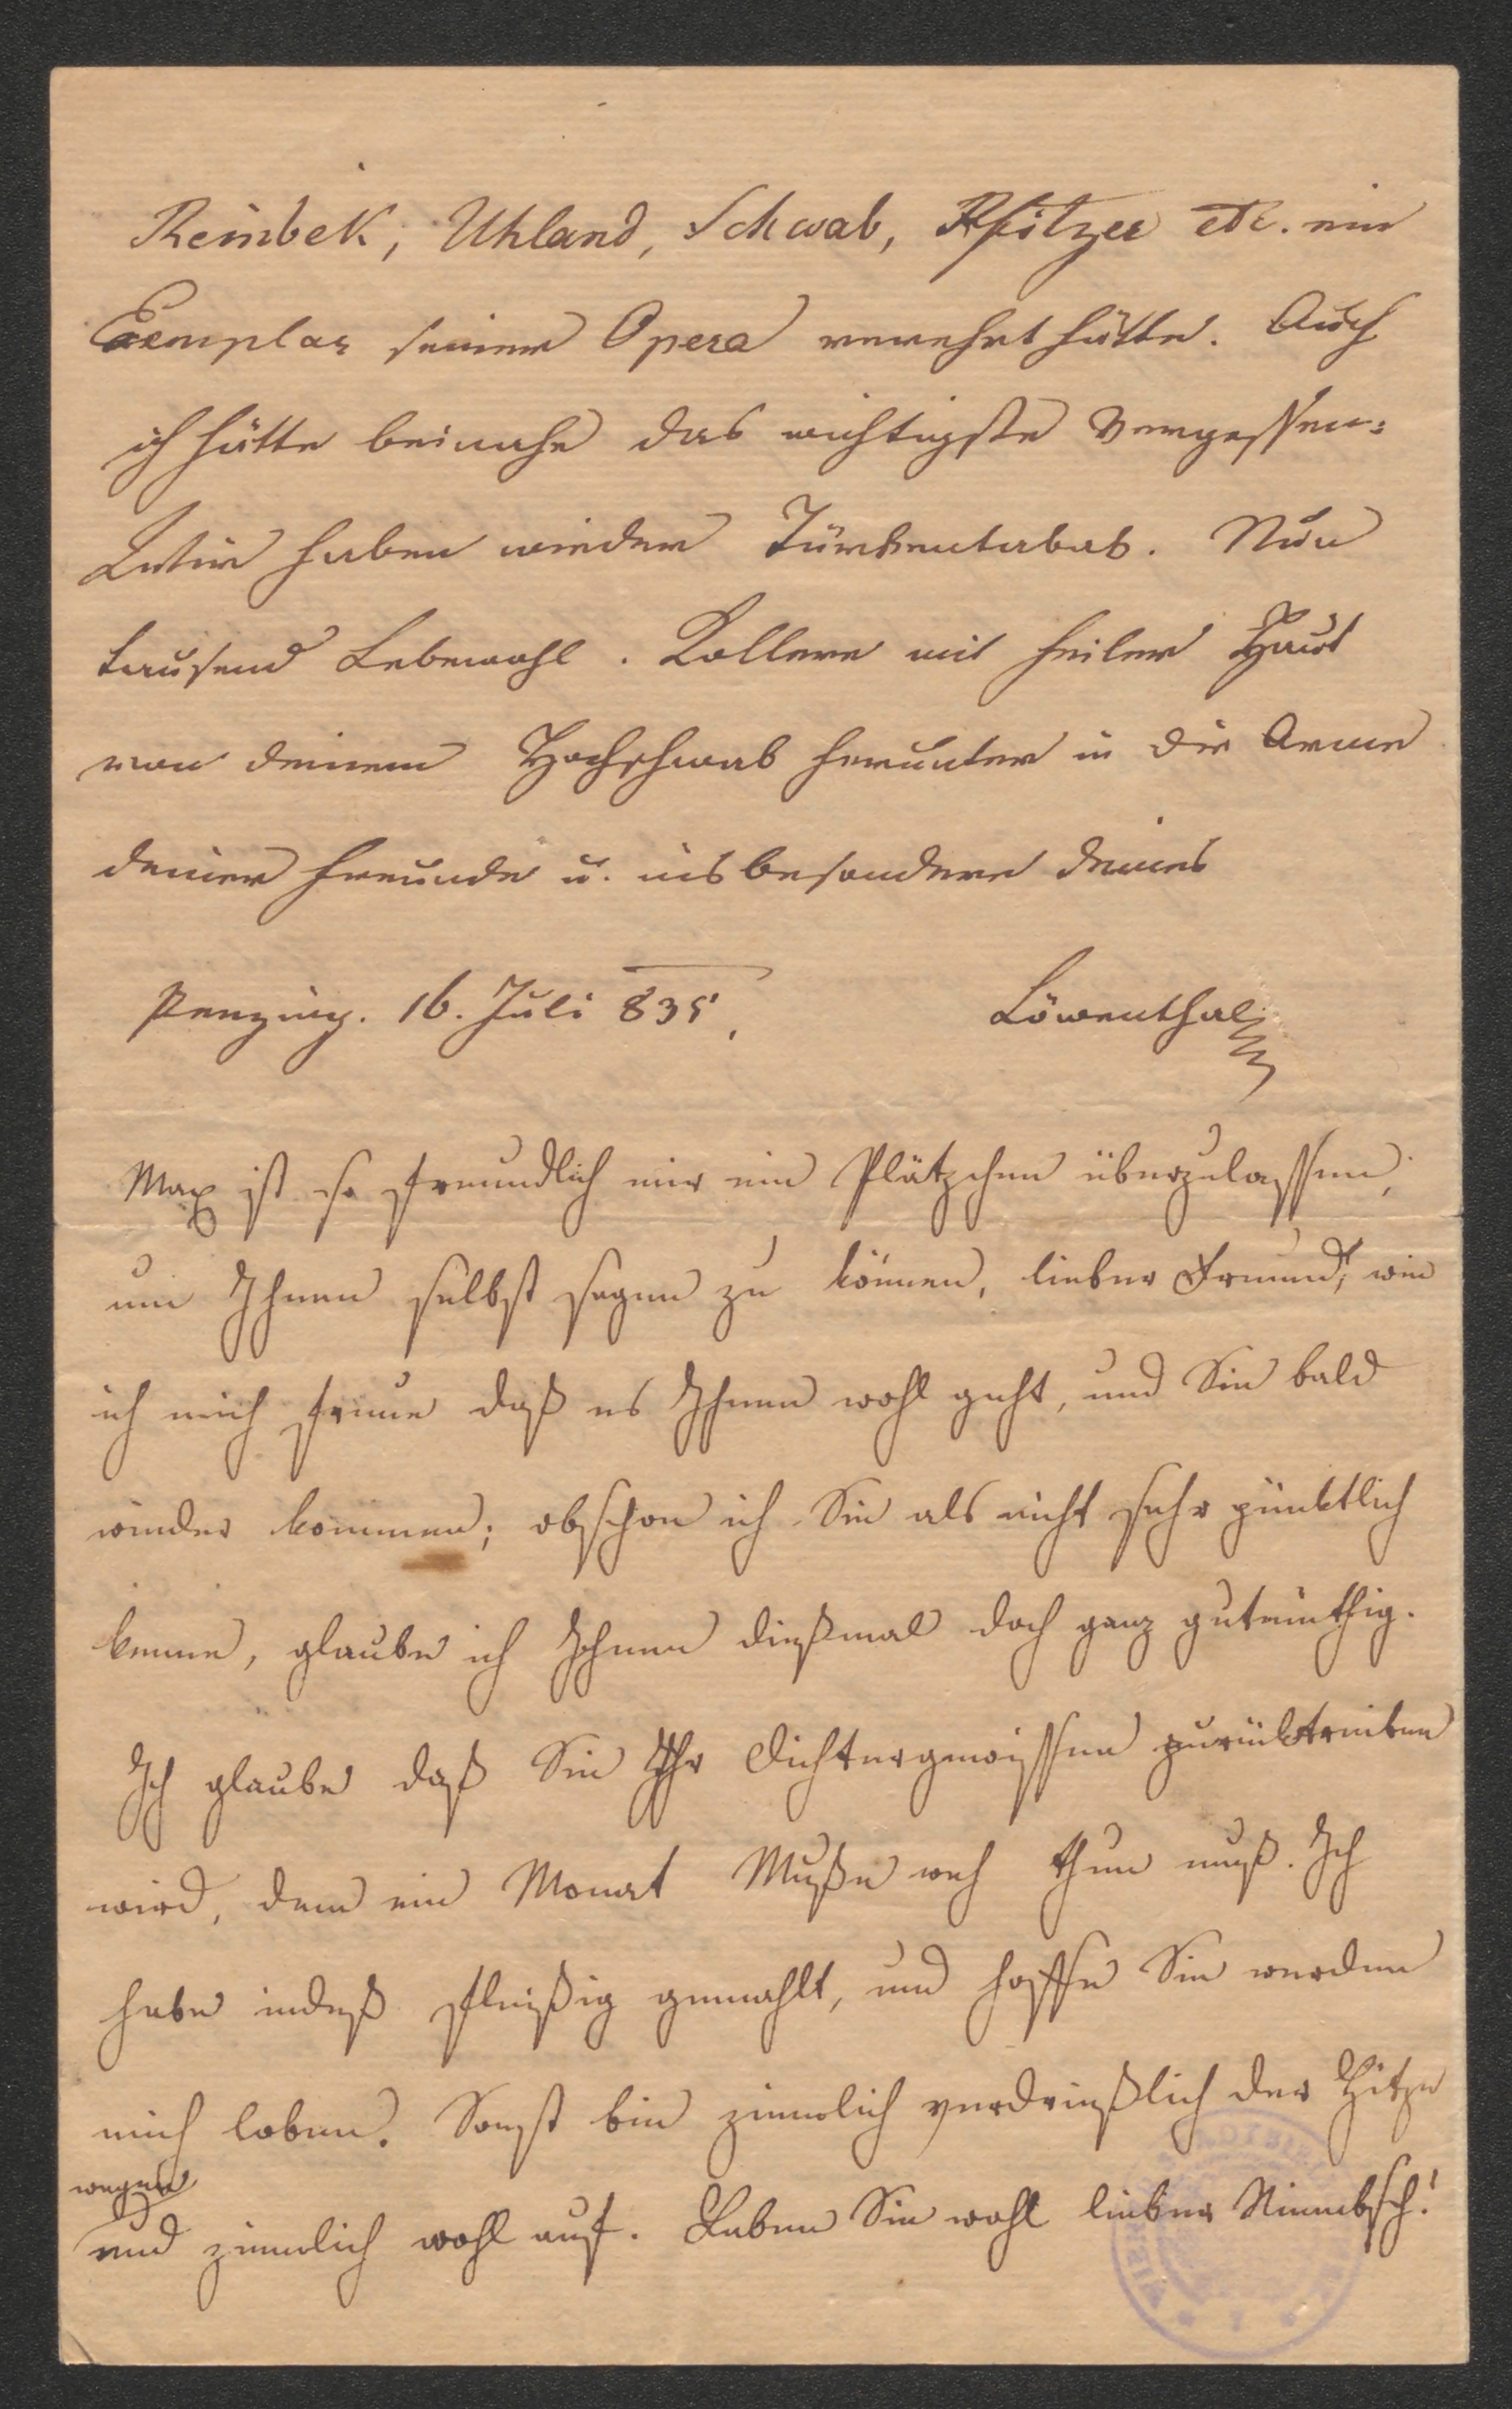 Reinbek, Uhland, Schwab, Pfitzer etc. ein
Exemplar seiner Opera verehrt hätte. Auch
ich hätte beinahe das wichtigste vergessen:
Wir haben wieder Türkentabak. Nun
tausend Lebewohl. Kollere mit heiler Haut
von deinem Hochschwab herunter in die Arme
deiner Freunde u. insbesondere deines
Penzing. 16. Juli 835.
Löwenthal
Max ist so freundlich mir ein Plätzchen überzulassen,
um Ihnen selbst sagen zu können, lieber Freund, wie
ich mich freue daß es Ihnen wohl geht, und Sie bald
wieder kommen; obschon ich Sie als nicht sehr pünktlich
kenne, glaube ich Ihnen dießmal doch ganz gutmüthig.
Ich glaube daß Sie Ihr Dichtergewissen zurücktreiben
wird, dem ein Monat Muße weh thun muß. Ich
habe indeß fleißig gemahlt, und hoffe Sie werden
mich loben. Sonst bin ziemlich verdrießlich der Hitze
wegen
und ziemlich wohl auf. Leben Sie wohl lieber Niembsch!